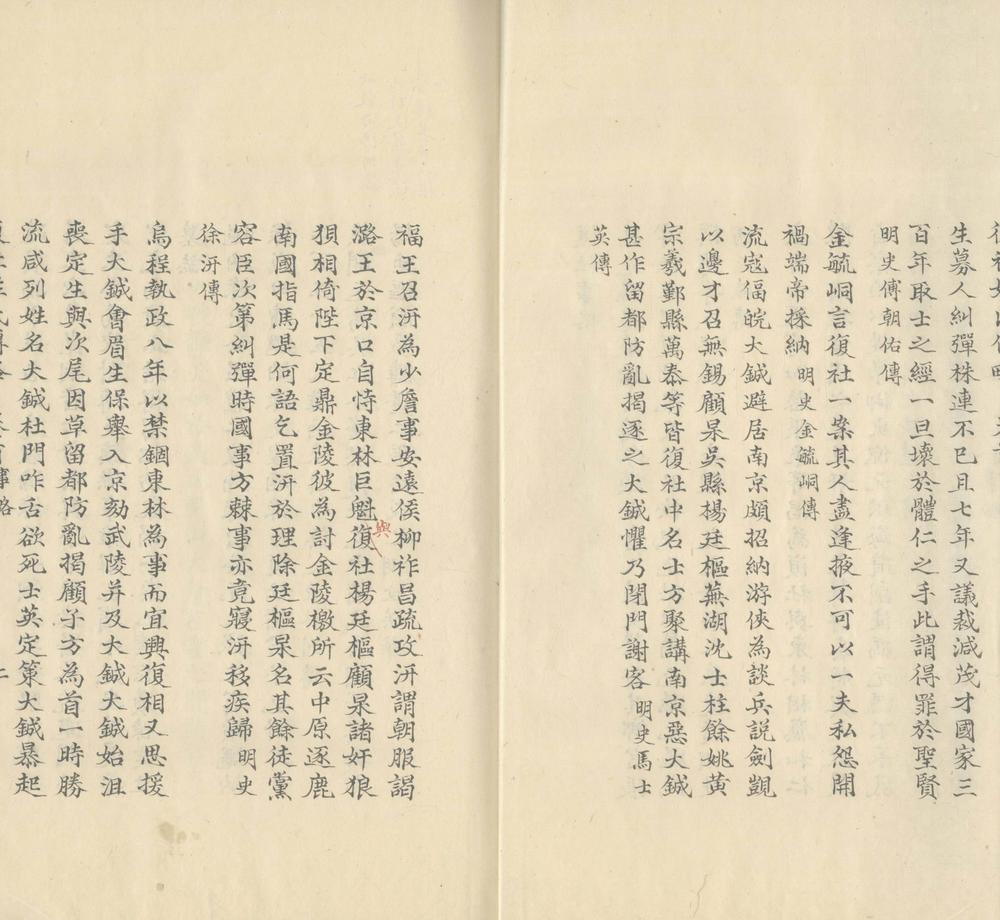 生募人糾彈株連不已且七年又議裁減茂才國家三
百年取士之經一旦壞於體仁之手此謂得罪於聖賢
明史傅朝佑傳
金毓峒言復社一案其人盡逢掖不可以一夫私怨開
禍端帝採納 明史金毓峒傳
流寇偪皖大鋮避居南京頗招納游俠為談兵説劍覬
以邊才召無錫顧杲吳縣楊廷樞蕪湖沈士柱餘姚黃
宗羲鄞縣萬泰等皆復社中名士方聚講南京惡大鋮
甚作留都防亂揭逐之大鋮懼乃閉門謝客 明史馬士
英傳
福王召汧為少詹事安遠侯柳祚昌疏攻汧謂朝服謁
潞王於京口自恃東林巨魁與復社楊廷樞顧杲諸奸狼
狽相倚陛下定鼎金陵彼為討金陵檄所云中原逐鹿
南國指馬是何語乞置汧於理除廷樞杲名其餘徒黨
容臣次第糾彈時國事方棘事亦竟寢汧移疾歸 明史
徐汧傳
烏程執政八年以禁錮東林為事而宜興復相又思援
手大鋮會眉生保舉入京劾武陵并及大鋮大鋮始沮
喪定生與次尾因草留都防亂揭顧子方為首一時勝
流咸列姓名大鋮杜門咋舌欲死士英定策大鋮暴起